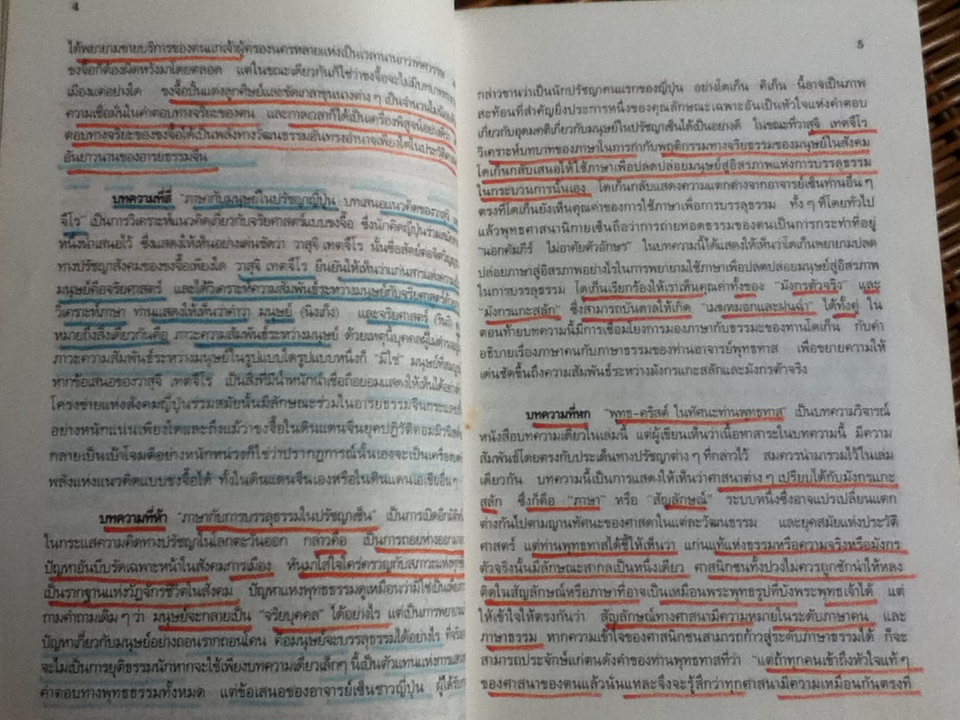 4
ได้พยายามขายบริการของตนแก่เจ้าผู้ครองนครหลายแห่งเป็นเวลานานกว่าทศวรรษ
ขงจื๊อก็ต้องผิดหวังมาโดยตลอด แต่ในขณะเดียวกันก็ใช่ว่าขงจื๊อจะไม่มีบทบาททาง
เมืองแต่อย่างใด ขงจื๊อปั้นแต่งลูกศิษย์และขัดเกลาขุนนางต่างๆ เป็นจำนวนไม่น้อย
ความเชื่อมั่นในคำตอบทางจริยะของตน และกาลเวลาก็ได้เป็นเครื่องพิสูจน์อย่างดีว่า
ตอบทางจริยะของขงจื๊อได้เป็นพลังทางวัฒนธรรมอันทรงอำนาจเพียงใดในประวัติศาสตร์
อันยาวนานของอารยธรรมจีน
บทความที่สี่ "ภาษากับมนุษย์ในปรัชญาญี่ปุ่น" บทเสนอแนวคิดของวาสุจิ
จึโร" เป็นการวิเคราะห์แนวคิดเกี่ยวกับจริยศาสตร์แบบขงจื๊อ ซึ่งนักคิดญี่ปุ่นร่วมสมัย
หนึ่งนำเสนอไว้ ซึ่งแสดงให้เห็นอย่างเด่นชัดว่า วาสุจิ เทตจึโร นั้นซื่อสัตย์ต่อจิตวิญญาณ
ทางปรัชญาสังคมของขงจื๊อเพียงใด วาสุจิ เทตจึโร ยืนยันให้เห็นว่าแก่นสารแห่งความเป็น
มนุษย์คือจริยศาสตร์ และได้วิเคราะห์ความสัมพันธ์ระหว่างมนุษย์กับจริยศาสตร์ด้วยการ
วิเคราะห์ภาษา ท่านแสดงให้เห็นว่าคำว่า มนุษย์ (นิงเก็ง) และจริยศาสตร์ (รินริ)
หมายถึงสิ่งเดียวกันคือ ภาวะความสัมพันธ์ระหว่างมนุษย์ ด้วยเหตุนี้บุคคลผู้ไม่ดำรงอยู่
ภาวะความสัมพันธ์ระหว่างมนุษย์ในรูปแบบใดรูปแบบหนึ่งก็ "มิใช่" มนุษย์ที่สมบูรณ์
หากข้อเสนอของวาสุจิ เทตจึโร เป็นสิ่งที่มีน้ำหนักน่าเชื่อถือย่อมแสดงให้เห็นได้อย่างดี
โครงข่ายแห่งสังคมญี่ปุ่นร่วมสมัยนั้นมีลักษณะร่วมในอารยธรรมจีนกระแส
อย่างหนักแน่นเพียงใดและถึงแม้ว่าขงจื๊อในดินแดนจีนยุคปฏิวัติคอมมิวนิสต์
กลายเป็นเป้าโจมตีอย่างหนักหน่วงก็ใช่ว่าปรากฏการณ์นั้นเองจะเป็นเครื่อง
พลังแห่งแนวคิดแบบขงจื๊อได้ ทั้งในดินแดนจีนเองหรือในดินแดนเอเชียอื่นๆ
บทความที่ห้า "ภาษากับการบรรลุธรรมในปรัชญาเซ็น" เป็นการเปิดอีกมิติ
ในกระแสความคิดทางปรัชญาในโลกตะวันออก กล่าวคือ เป็นการถอยห่างออกมาจาก
ปัญหาอันบีบรัดเฉพาะหน้าในสังคมการเมือง หันมาใส่ใจใคร่ครวญกับสภาวะแห่งทุกข์
เป็นรากฐานแห่งวัฏจักรชีวิตในสังคม ปัญหาแห่งพุทธธรรมดูเหมือนว่ามิใช่เป็นเพียง
ถามคำถามเดิมๆ ว่า มนุษย์จะกลายเป็น "จริยบุคคล" ได้อย่างไร แต่เป็นการพยายาม
ปัญหาเกี่ยวกับมนุษย์อย่างถอนรากถอนโคน คือมนุษย์จะบรรลุธรรมได้อย่างไร ที่จริง
จะไม่เป็นการยุติธรรมนักหากจะใช้เพียงบทความเดียวเล็กๆ นี้เป็นตัวแทนแห่งการแสวงหา
คำตอบทางพุทธธรรมทั้งหมด แต่ข้อเสนอของอาจารย์เซ็นชาวญี่ปุ่น ผู้ได้รับการ
5
กล่าวขานว่าเป็นนักปรัชญาคนแรกของญี่ปุ่น อย่างโดเก็น คิเก็น นี้อาจเป็นภาพ
สะท้อนที่สำคัญยิ่งประการหนึ่งของคุณลักษณะเฉพาะอันเป็นหัวใจแห่งคำตอบ
เกี่ยวกับอุดมคติเกี่ยวกับมนุษย์ในปรัชญาเซ็นได้เป็นอย่างดี ในขณะที่วาสุจิ เทตจึโร
วิเคราะห์บทบาทของภาษาในการกำกับพฤติกรรมทางจริยธรรมของมนุษย์ในสังคม
โดเก็นกลับเสนอให้ใช้ภาษาเพื่อปลดปล่อยมนุษย์สู่อิสรภาพแห่งการบรรลุธรรม
ในกระบวนการนั้นเอง โดเก็นกลับแสดงความแตกต่างจากอาจารย์เซ็นท่านอื่นๆ
ตรงที่โดเก็นยังเห็นคุณค่าของการใช้ภาษาเพื่อการบรรลุธรรม ทั้งๆ ที่โดยทั่วไป
แล้วพุทธศาสนานิกายเซ็นถือว่าการถ่ายทอดธรรมของตนเป็นการกระทำที่อยู่
"นอกคัมภีร์ ไม่อาศัยตัวอักษร" ในบทความนี้ได้แสดงให้เห็นว่าโดเก็นพยายามปลด
ปล่อยภาษาสู่อิสรภาพอย่างไรในการพยายามใช้ภาษาเพื่อปลดปล่อยมนุษย์สู่อิสรภาพ
ในการบรรลุธรรม โดเก็นเรียกร้องให้เราเห็นคุณค่าทั้งของ "มังกรตัวจริง" และ
"มังกรแกะสลัก" ซึ่งสามารถบันดาลให้เกิด "เมฆหมอกและฝนฉ่ำ" ได้ทั้งคู่ ใน
ตอนท้ายบทความนี้มีการเชื่อมโยงการมองภาษากับธรรมะของท่านโดเก็น กับคำ
อธิบายเรื่องภาษาคนกับภาษาธรรมของท่านอาจารย์พุทธทาส เพื่อขยายความให้
เด่นชัดขึ้นถึงความสัมพันธ์ระหว่างมังกรแกะสลักและมังกรตัวจริง
บทความที่หก "พุทธ-คริสต์ ในทัศนะท่านพุทธทาส" เป็นบทความวิจารณ์
หนังสือบทความเดียวในเล่มนี้ แต่ผู้เขียนเห็นว่าเนื้อหาสาระในบทความนี้ มีความ
สัมพันธ์โดยตรงกับประเด็นทางปรัชญาต่างๆ ที่กล่าวไว้ สมควรนำมารวมไว้ในเล่ม
เดียวกัน บทความนี้เป็นการแสดงให้เห็นว่าศาสนาต่างๆ เปรียบได้กับมังกรแกะ
สลัก ซึ่งก็คือ "ภาษา" หรือ "สัญลักษณ์" ระบบหนึ่งซึ่งอาจแปรเปลี่ยนแตก
ต่างกันไปตามญาณทัศนะของศาสดาในแต่ละวัฒนธรรม และยุคสมัยแห่งประวัติ
ศาสตร์ แต่ท่านพุทธทาสได้ชี้ให้เห็นว่า แก่นแท้แห่งธรรมหรือความจริงหรือมังกร
ตัวจริงนั้นมีลักษณะสากลเป็นหนึ่งเดียว ศาสนิกชนทั้งปวงไม่ควรถูกชักนำให้หลง
ติดในสัญลักษณ์หรือภาษาที่อาจเป็นเหมือนพระพุทธรูปที่บังพระพุทธเจ้าได้ แต่
ให้เข้าใจให้ตรงกันว่า สัญลักษณ์ทางศาสนามีความหมายในระดับภาษาคน และ
ภาษาธรรม หากความเข้าใจของศาสนิกชนสามารถก้าวสู่ระดับภาษาธรรมได้ ก็จะ
สามารถประจักษ์แก่ตนดังคำของท่านพุทธทาสที่ว่า "แต่ถ้าทุกคนเข้าถึงหัวใจแท้ๆ
ของศาสนาของตนแล้วนั่นแหละจึงจะรู้สึกว่าทุกศาสนามีความเหมือนกันตรงที่